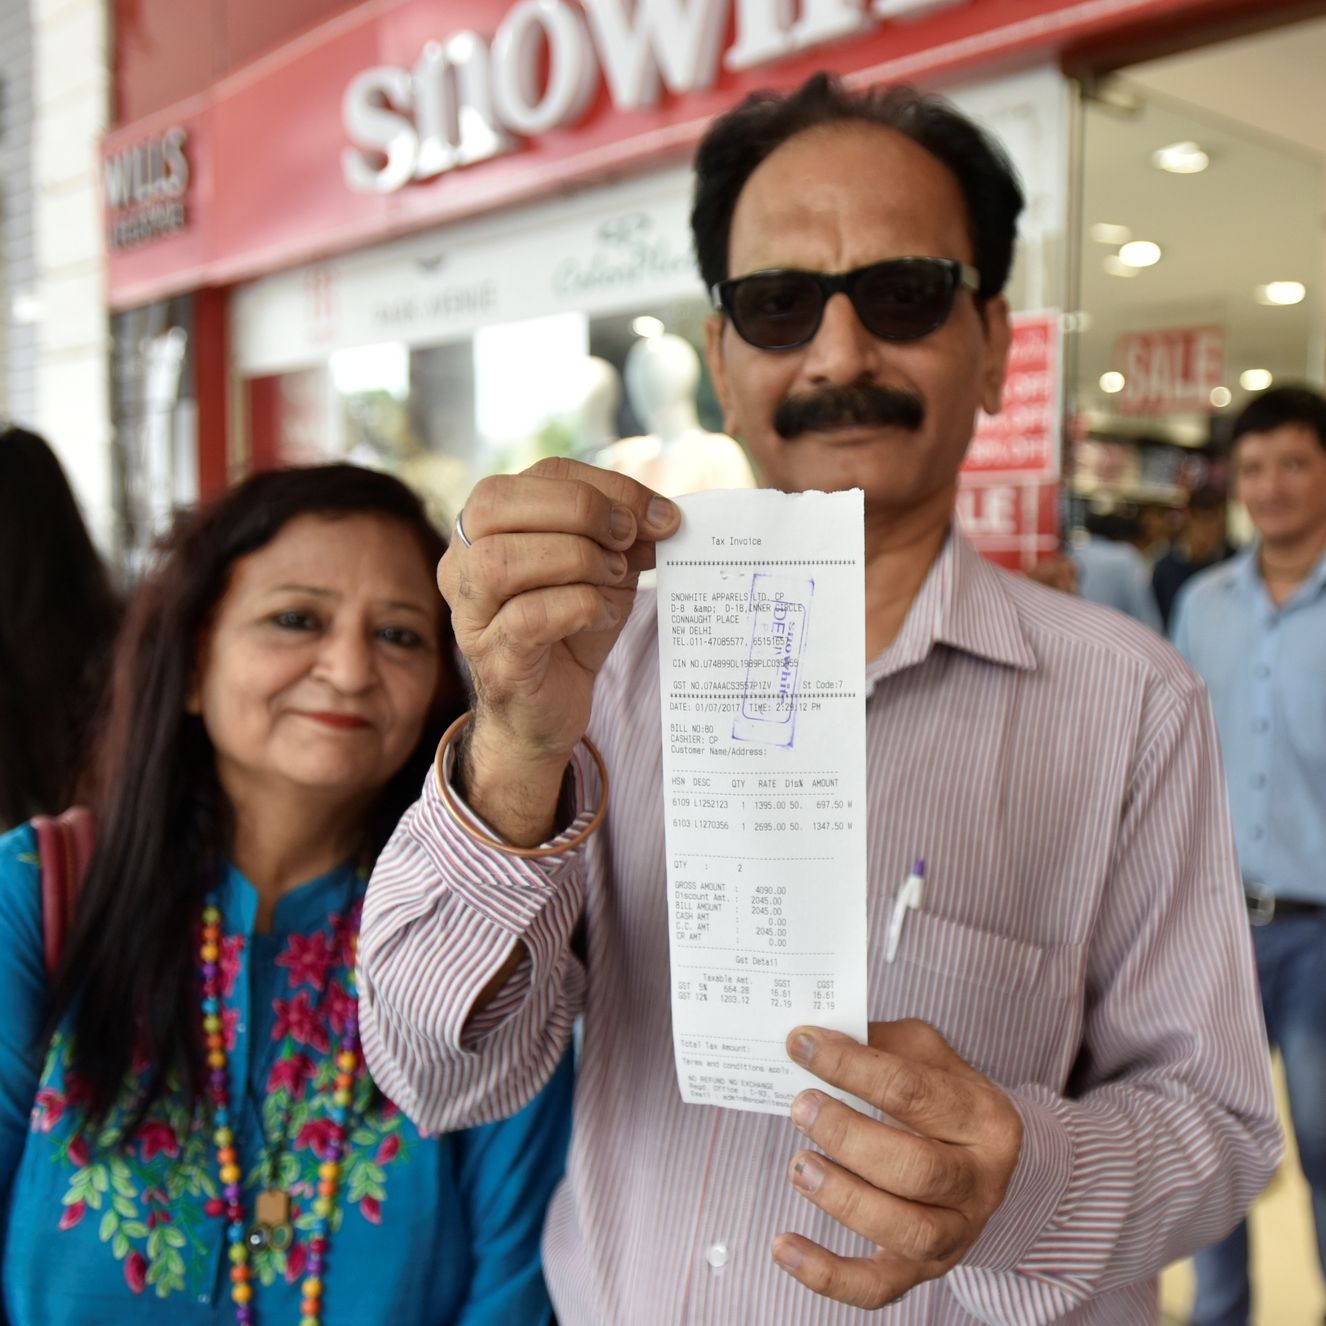 snow
WILLS
SALE
LE
Tax Invoice
SNOWHITE APPARELS LTD. CP
D-8 &amp; D-18,INNER CIRCLE
CONNAUGHT PLACE
NEW DELHI
TEL.011-47085577, 6515165
CIN NO.U74899DL1989PLC035
GST NO.07AAACS3557P1ZV St Code:7
DATE: 01/07/2017 TIME: 2:29:12 PM
snowhite
BILL NO:80
CASHIER: CP
Customer Name/Address:
HSN DESC QTY RATE Dis% AMOUNT
6109 L1252123 1 1395.00 50. 697.50 W
6103 L1270356 1 2695.00 50. 1347.50 W
QTY : 2
GROSS AMOUNT : 4090.00
Discount Amt. : 2045.00
BILL AMOUNT : 2045.00
CASH AMT : 0.00
C.C. AMT : 2045.00
CR AMT : 0.00
Gst Detail
Taxable Amt. SGST CGST
GST 5% 664.28 16.61 16.61
GST 12% 1203.12 72.19 72.19
Total Tax Amount:
Terms and conditions apply.
NO REFUND NO EXCHANGE
Regd. Office : C-93, South
Email : admin@snowhite